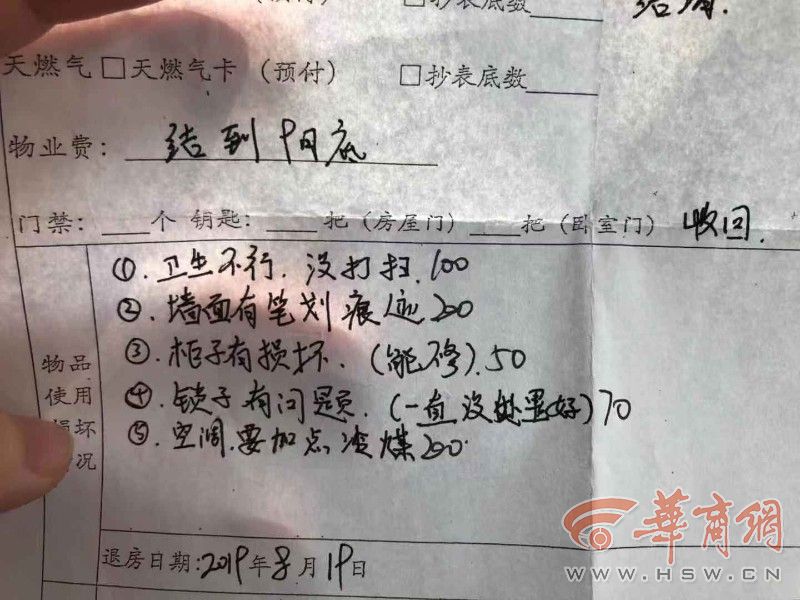 (预付) □抄表底数____ 结清.
天燃气 □天燃气卡 (预付) □抄表底数____
物业费: 结到9月底
门禁: ___个 钥匙: ___把 (房屋门) ___把 (卧室门) 收回.
①. 卫生不行. 没打扫. 100
②. 墙面有笔划痕迹 200
③. 柜子有损坏. (能修). 50
④. 锁子有问题. (一直没处理好) 70
⑤. 空调. 要加点冷煤 200.
物品
使用
损坏
情况
退房日期: 2019年8月19日
华商网
WWW.HSW.CN